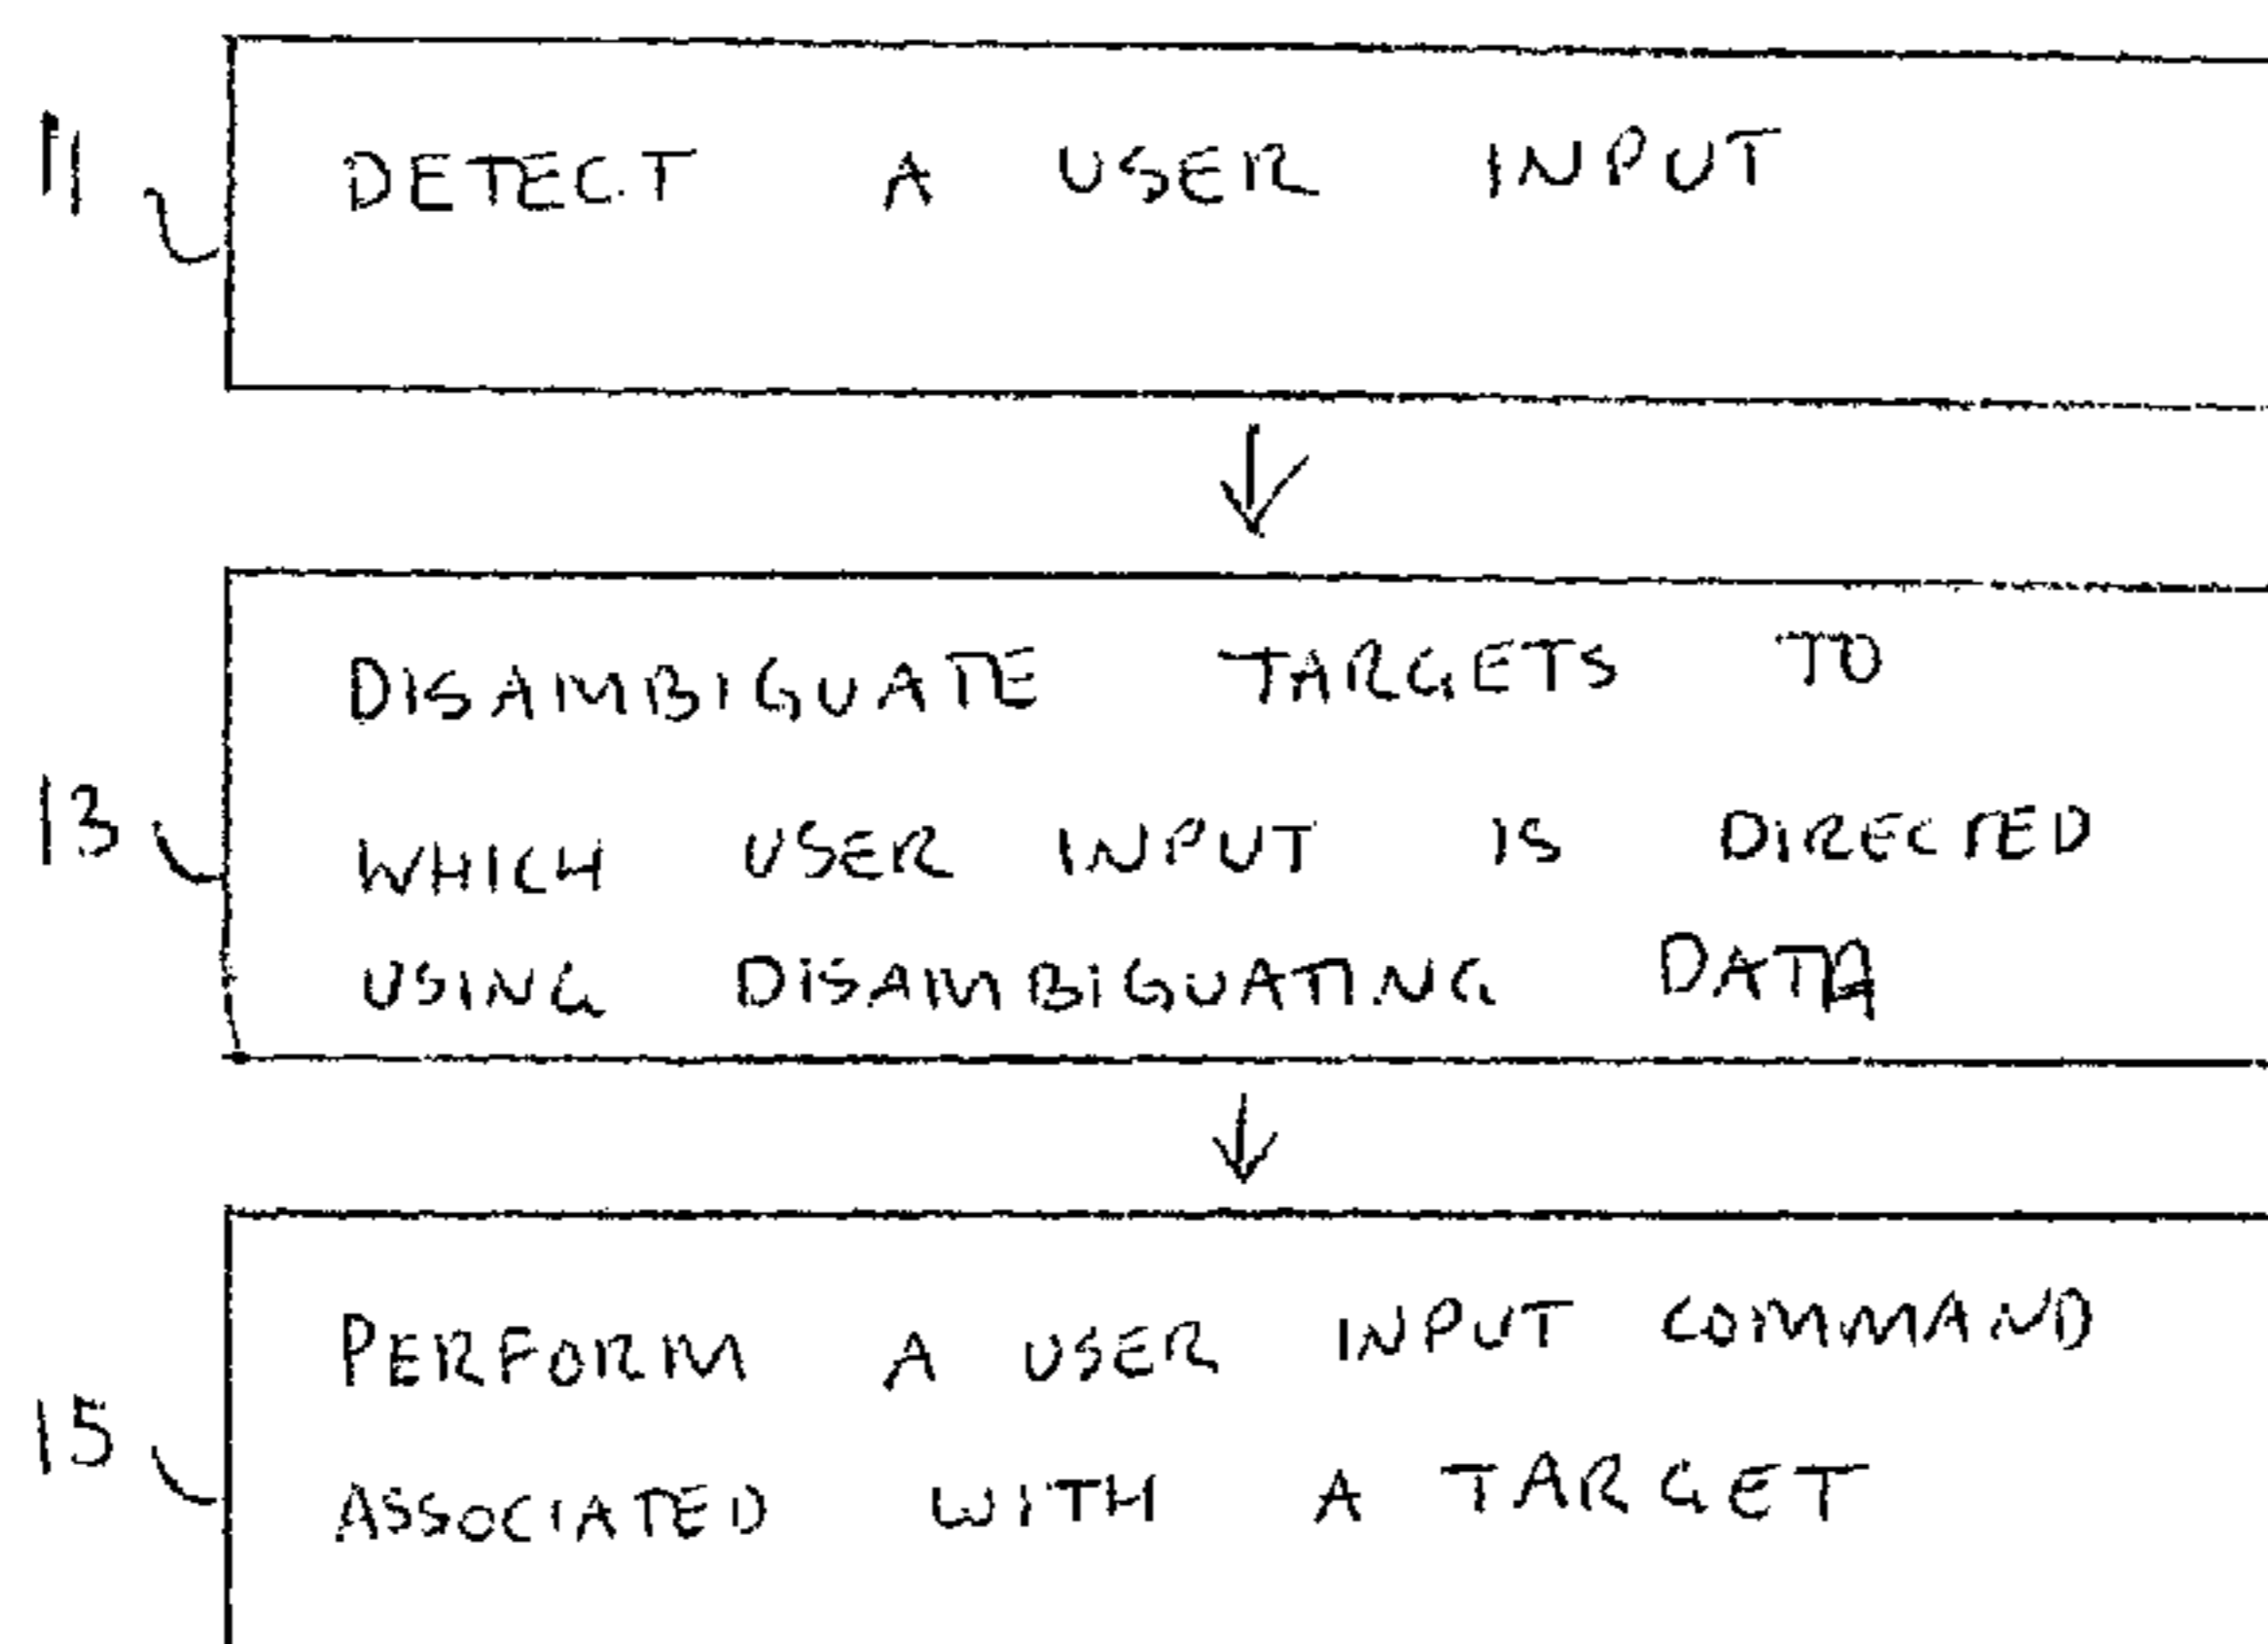 11
DETECT A USER INPUT
DISAMBIGUATE TARGETS TO
13
WHICH USER INPUT IS DIRECTED
USING DISAMBIGUATING DATA
PERFORM A USER INPUT COMMAND
15
ASSOCIATED WITH A TARGET